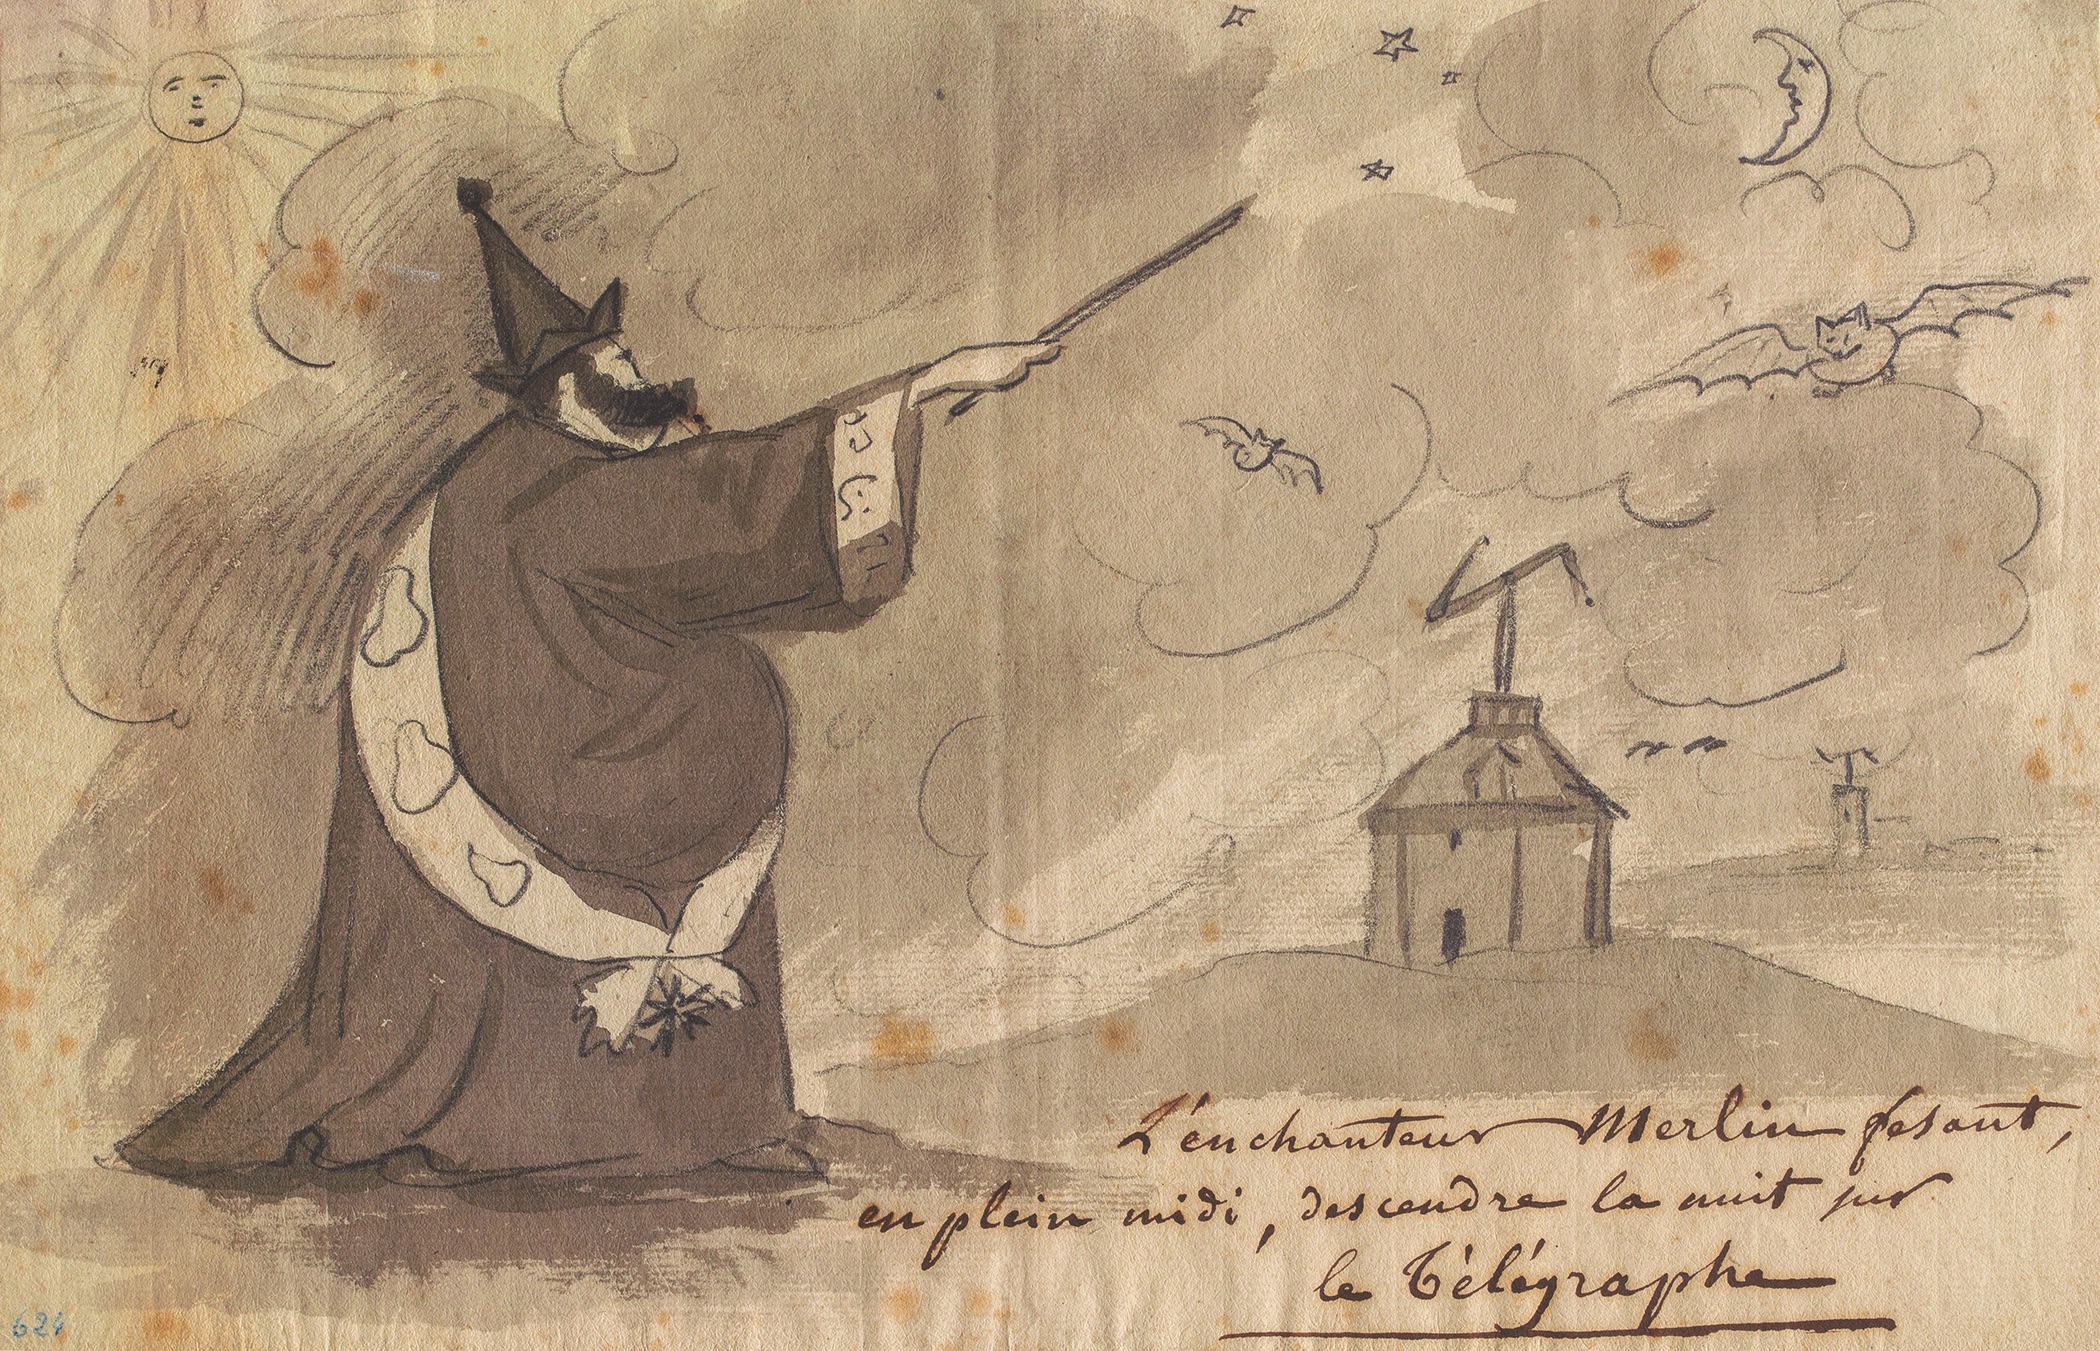 L'énchanteur Merlin fesant,
en plein midi, descendre la nuit sur
le Télégraphe
624